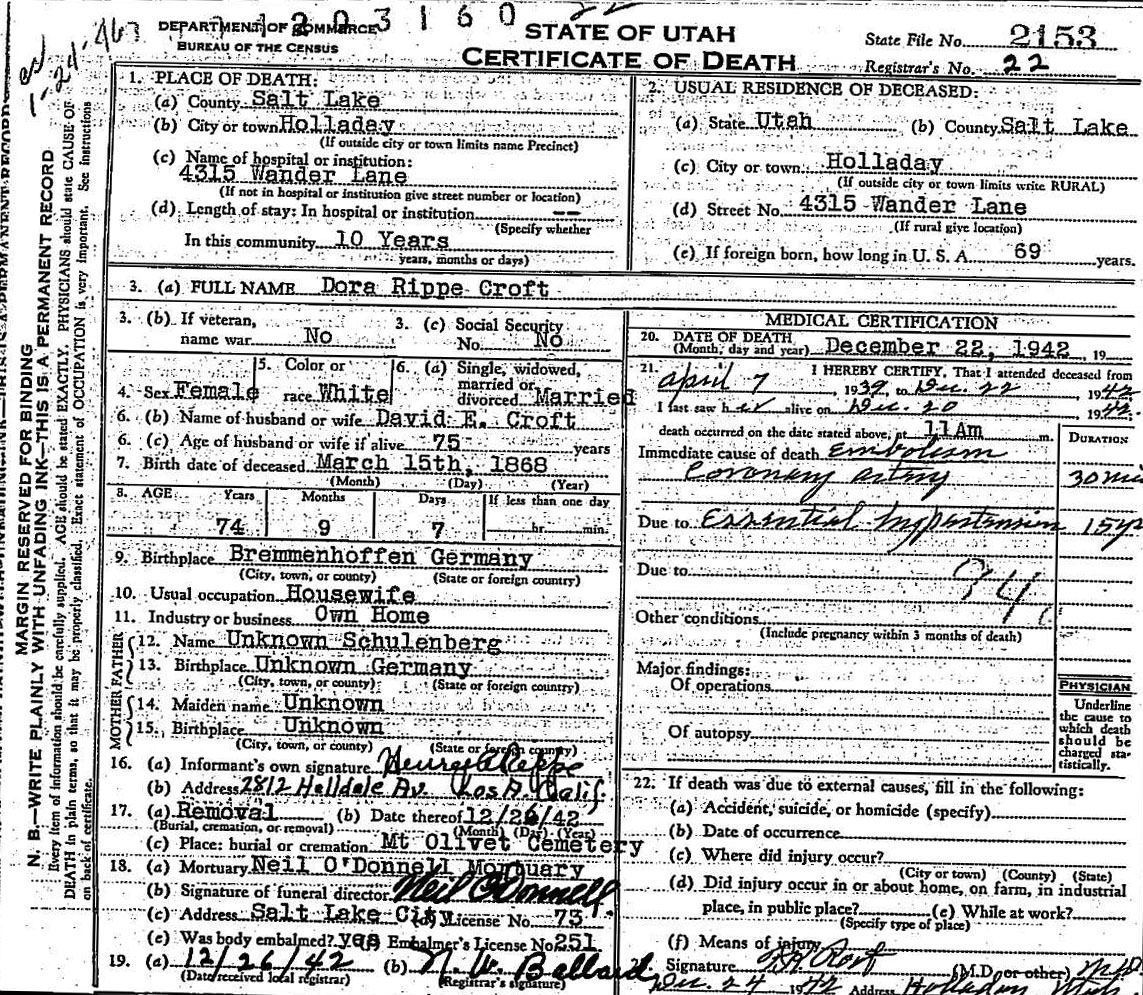 DEPARTMENT OF COMMERCE
BUREAU OF THE CENSUS
203160
22
STATE OF UTAH
CERTIFICATE OF DEATH
State File No. 2153
Registrar's No. 22
MARGIN RESERVED FOR BINDING
N. B.—WRITE PLAINLY WITH UNFADING INK—THIS IS A PERMANENT RECORD
Every item of information should be carefully supplied. AGE should be stated EXACTLY. PHYSICIANS should state CAUSE OF
DEATH in plain terms, so that it may be properly classified. Exact statement of OCCUPATION is very important. See instructions
on back of certificate.
1. PLACE OF DEATH:
(a) County Salt Lake
(b) City or town Holladay
(If outside city or town limits name Precinct)
(c) Name of hospital or institution:
4315 Wander Lane
(If not in hospital or institution give street number or location)
(d) Length of stay: In hospital or institution --
(Specify whether
In this community 10 Years
years, months or days)
2. USUAL RESIDENCE OF DECEASED:
(a) State Utah (b) County Salt Lake
(c) City or town Holladay
(If outside city or town limits write RURAL)
(d) Street No. 4315 Wander Lane
(If rural give location)
(e) If foreign born, how long in U. S. A. 69 years.
3. (a) FULL NAME Dora Rippe Croft
3. (b) If veteran,
name war No
3. (c) Social Security
No. No
4. Sex Female
5. Color or
race White
6. (a) Single, widowed,
married or
divorced Married
6. (b) Name of husband or wife David E. Croft
6. (c) Age of husband or wife if alive 75 years
7. Birth date of deceased March 15th, 1868
(Month) (Day) (Year)
8. AGE Years Months Days If less than one day
74 9 7 hr. min.
9. Birthplace Bremmenhoffen Germany
(City, town, or county) (State or foreign country)
10. Usual occupation Housewife
11. Industry or business Own Home
FATHER
12. Name Unknown Schulenberg
13. Birthplace Unknown Germany
(City, town, or county) (State or foreign country)
MOTHER
14. Maiden name Unknown
15. Birthplace Unknown
(City, town, or county) (State or foreign country)
16. (a) Informant's own signature Henry A Rippe
(b) Address 2812 Halldale Av. Los A. Calif.
17. (a) Removal (b) Date thereof 12/26/42
(Burial, cremation, or removal) (Month) (Day) (Year)
(c) Place: burial or cremation Mt Olivet Cemetery
18. (a) Mortuary Neil O'Donnell Mortuary
(b) Signature of funeral director Neil O'Donnell
(c) Address Salt Lake City (d) License No. 73
(e) Was body embalmed? yes Embalmer's License No 251
19. (a) 12/26/42 (b) N. W. Ballard
(Date received local registrar) (Registrar's signature)
MEDICAL CERTIFICATION
20. DATE OF DEATH
(Month, day and year) December 22, 1942, 19
21. I HEREBY CERTIFY, That I attended deceased from
April 7 1939, to Dec. 22 1942
I last saw her alive on Dec. 20, 1942
death occurred on the date stated above, at 11 Am m.
DURATION
Immediate cause of death Embolism
Coronary artery 30 min
Due to Essential Hypertension 15 y
Due to
94
Other conditions
(Include pregnancy within 3 months of death)
Major findings:
Of operations
Of autopsy
PHYSICIAN
Underline
the cause to
which death
should be
charged sta-
tistically.
22. If death was due to external causes, fill in the following:
(a) Accident, suicide, or homicide (specify)
(b) Date of occurrence
(c) Where did injury occur?
(City or town) (County) (State)
(d) Did injury occur in or about home, on farm, in industrial
place, in public place? (e) While at work?
(Specify type of place)
(f) Means of injury
Signature (M.D. or other) MD
Dec. 24 1942 Address Holladay Utah